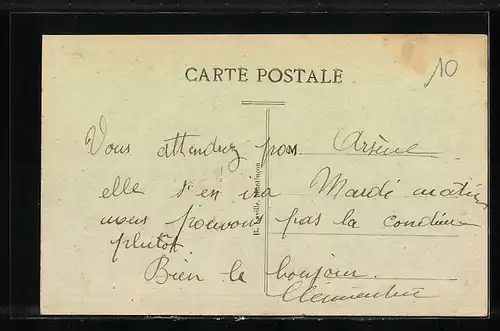 CARTE POSTALE
10
Vous attendrez pas Arsène
elle s'en ira Mardi matin
nous pouvons pas la conduire
plutôt
Bien le bonjour.
Clémentine